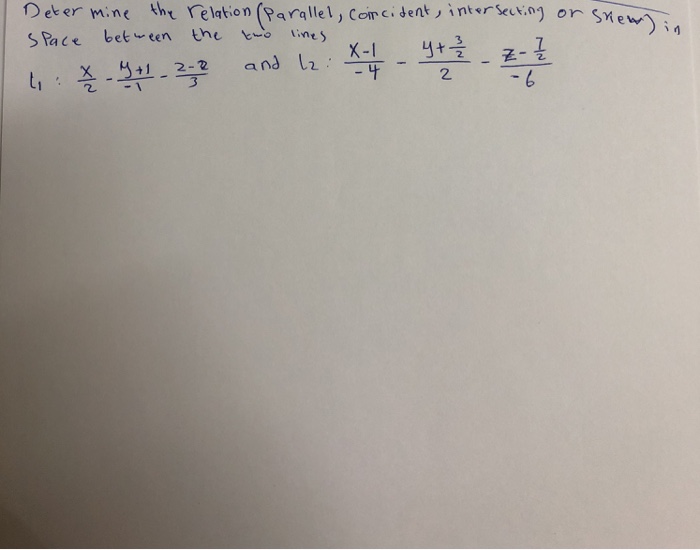 Determine the relation (Parallel, Coincident, intersecting or skew) in
space between the two lines
l₁ : x/2 - y+1/-1 - 2-2/3 and l₂ : x-1/-4 - y+3/2/2 - z-7/2/-6